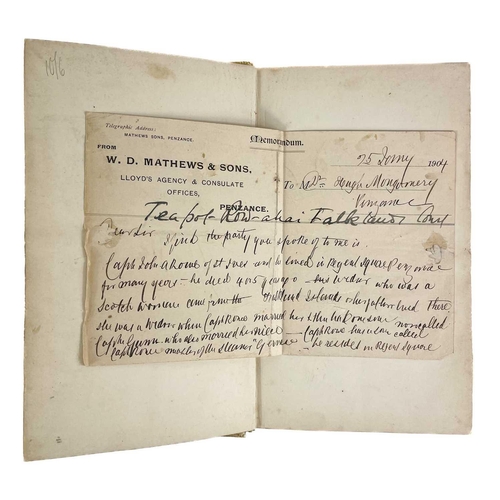 10/6
Telegraphic Address:
MATHEWS SONS, PENZANCE.
Memorandum.
FROM
W. D. MATHEWS & SONS.
LLOYD'S AGENCY & CONSULATE
OFFICES,
PENZANCE.
25 1904
To Hugh Montgomery
Penzance
Teapot Row Falkland
Dear Sir I find the party you spoke of to me is
Capt John Rowe of St Ives and he lived in Regent Square Penzance
for many years he died 4 or 5 years ago his widow who was a
Scotch woman came from the Falkland Islands There
she was a widow when Capt Rowe married her
Capt Gunn who also married her niece Capt Rowe has
Capt Rowe master of the Steamer he resided in Regent Square